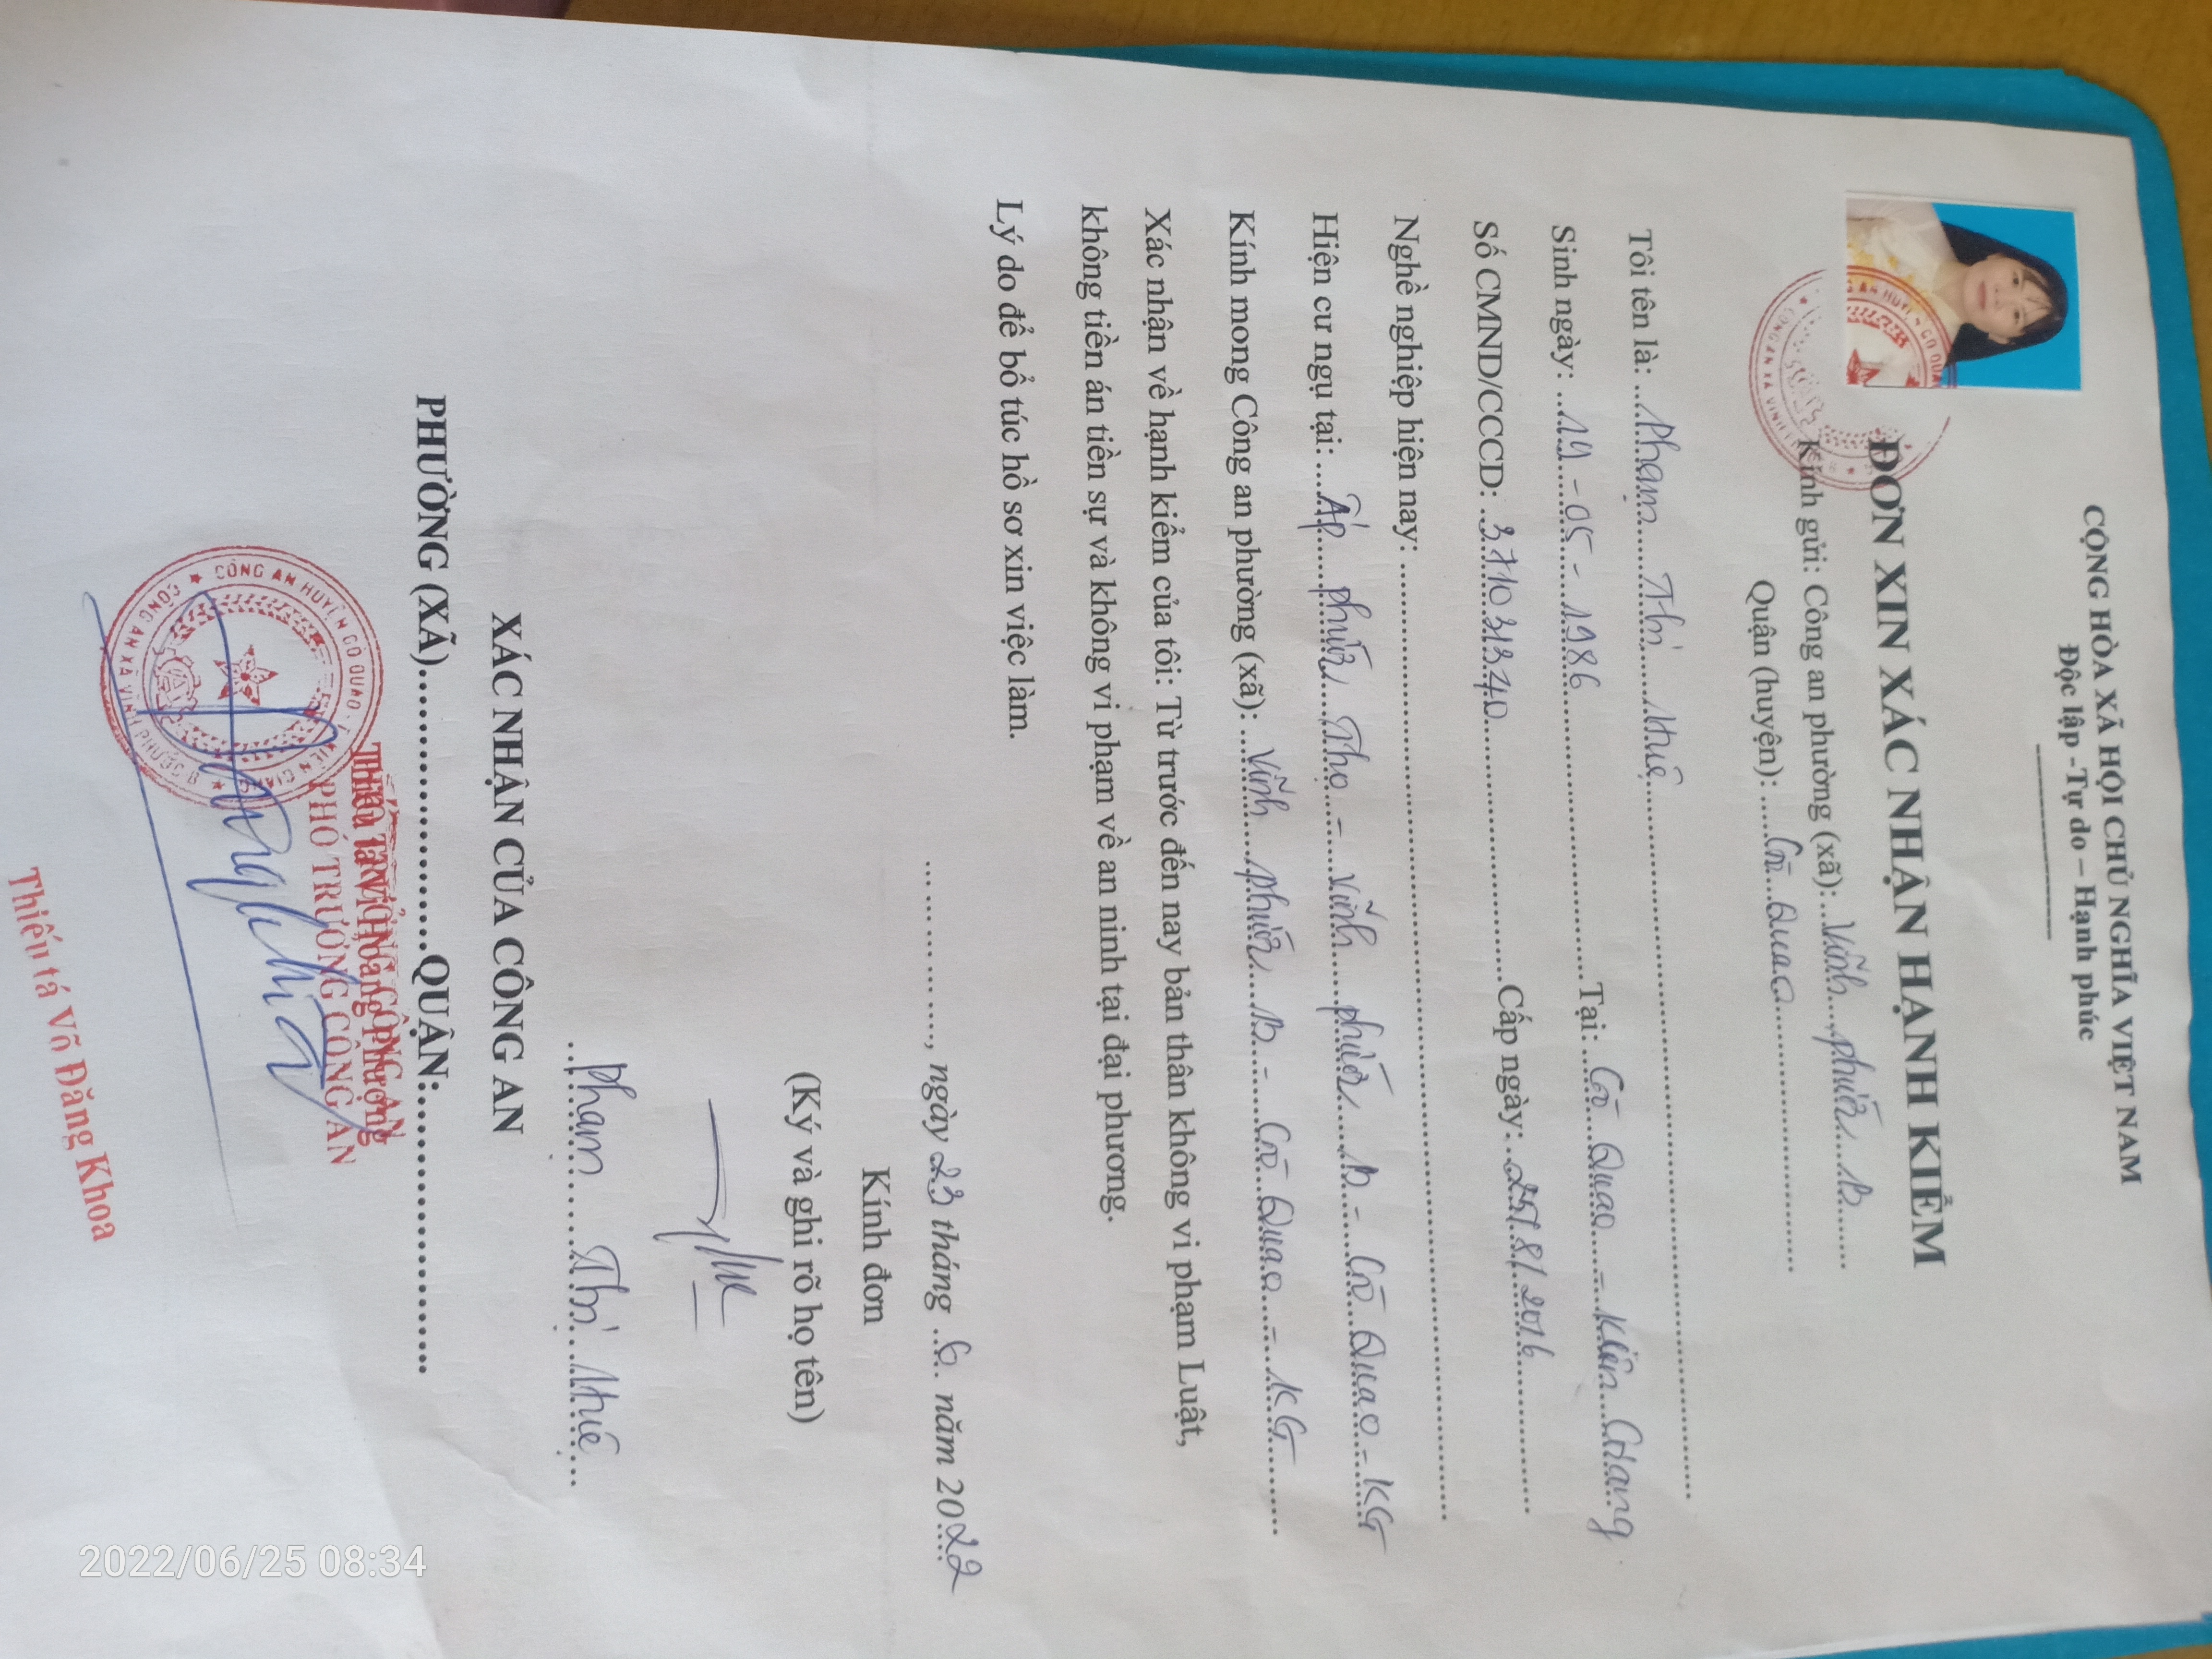 CỘNG HÒA XÃ HỘI CHỦ NGHĨA VIỆT NAM
Độc lập -Tự do – Hạnh phúc
ĐƠN XIN XÁC NHẬN HẠNH KIỂM
Kính gửi: Công an phường (xã): Vĩnh Phước B
Quận (huyện): Gò Quao
Tôi tên là: Phạm Thị Huê
Sinh ngày: 19-05-1986 Tại: Gò Quao - Kiên Giang
Số CMND/CCCD: 371031340 Cấp ngày: 8/2016
Nghề nghiệp hiện nay:
Hiện cư ngụ tại: Ấp Phước Thọ - Vĩnh Phước B - Gò Quao - KG
Kính mong Công an phường (xã): Vĩnh Phước B - Gò Quao - KG
Xác nhận về hạnh kiểm của tôi: Từ trước đến nay bản thân không vi phạm Luật,
không tiền án tiền sự và không vi phạm về an ninh tại đại phương.
Lý do để bổ túc hồ sơ xin việc làm.
, ngày 23 tháng 6 năm 2022
Kính đơn
(Ký và ghi rõ họ tên)
Phạm Thị Huê
XÁC NHẬN CỦA CÔNG AN
PHƯỜNG (XÃ) QUẬN:
PHÓ TRƯỞNG CÔNG AN
CÔNG AN HUYỆN GÒ QUAO - T. KIÊN GIANG
CÔNG AN XÃ VĨNH PHƯỚC B
Thiếu tá Võ Đăng Khoa
2022/06/25 08:34